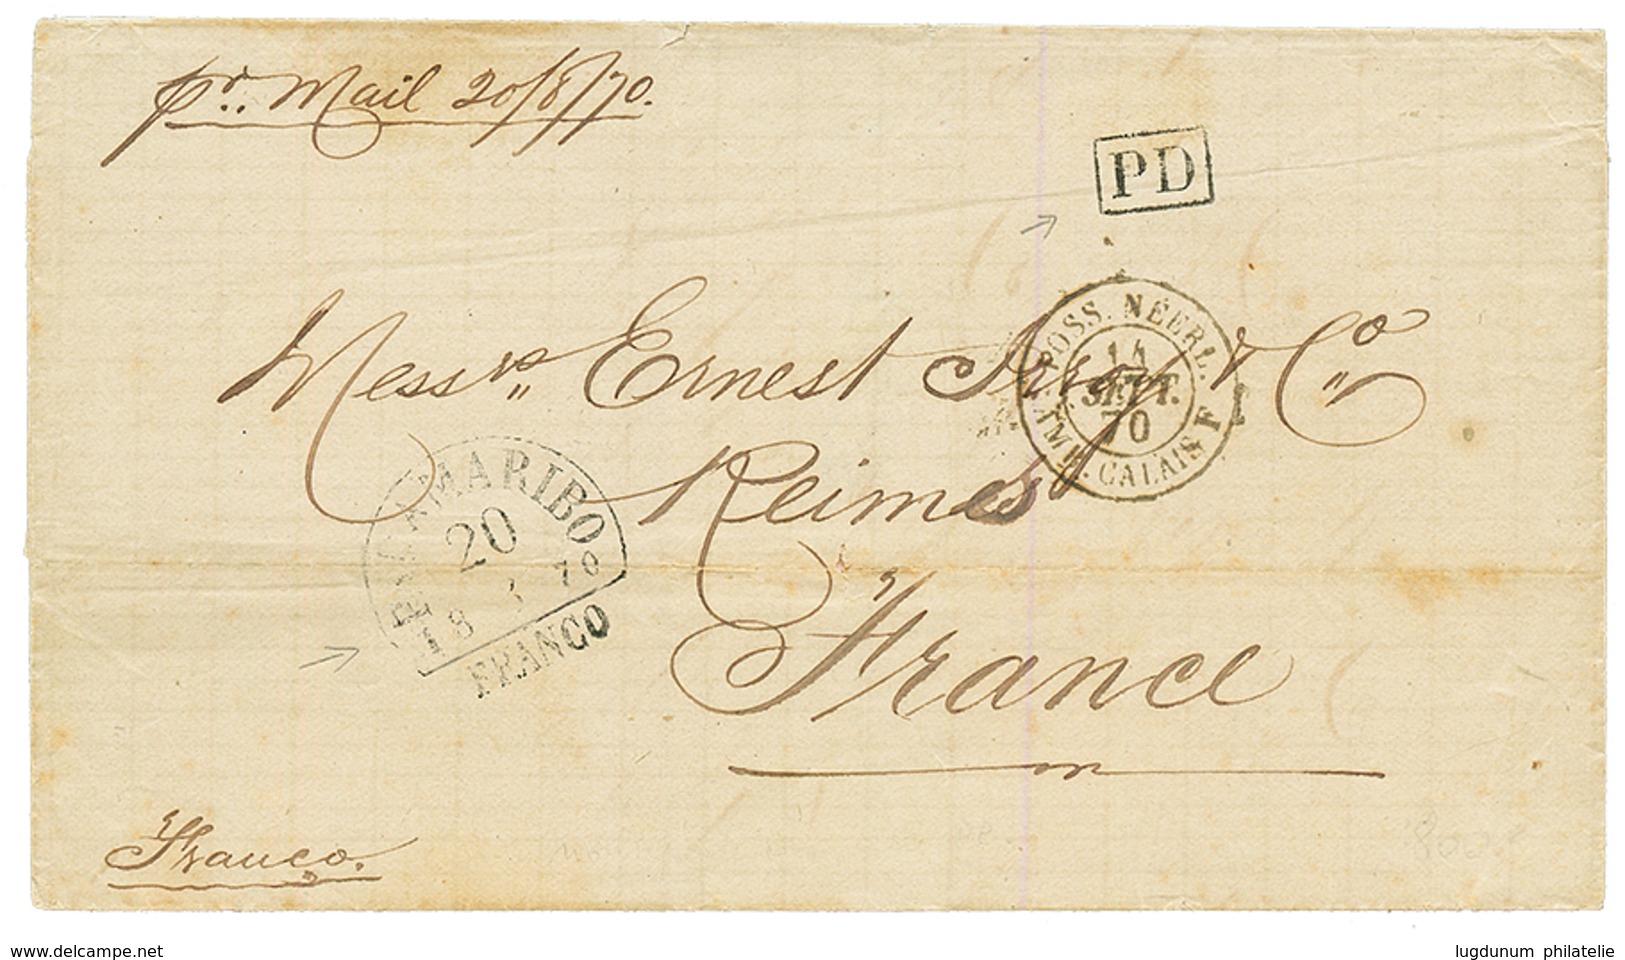 pr. Mail 20/8/70.
PD
POSS. NÉERL.
14
SEPT.
70
F. AMB. CALAIS F
Messrs Ernest & Co
Reims
France
PARAMARIBO
20
18 70
FRANCO
Franco.
www.delcampe.net
lugdunum philatelie